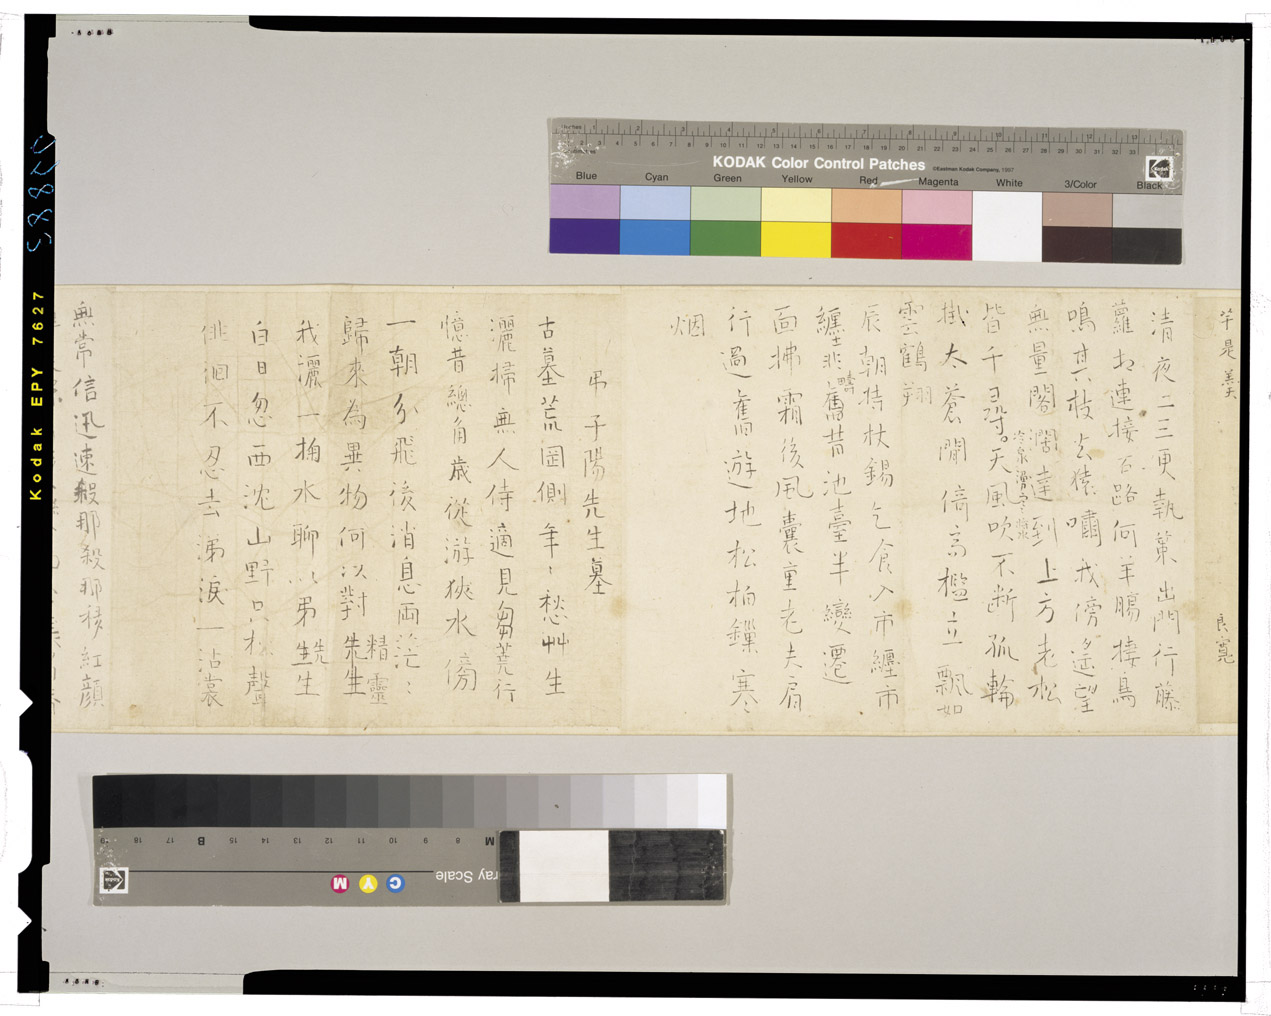 芋是羹
良寛
清夜二三更執策出門行藤
蘿相連接石路何羊腸棲鳥
鳴其枝玄猿嘯我傍遙望
無量閣濶達到上方老松
皆千尋天風吹不断孤輪
掛太蒼閒倚高檻立飄如
雲鶴翔
辰朝持杖錫乞食入市纏市
纏悲疇舊昔池臺半變遷
面拂霜後風囊重老夫肩
行過舊遊地松柏鎖寒
烟
弔子陽先生墓
古墓荒岡側年〻愁艸生
灑掃無人侍適見芻蕘行
憶昔總角歳從游狹水傍
一朝分飛後消息両茫〻
歸来為異物何以對先生
精靈
我灑一掬水聊以弔先生
白日忽西沈山野只松聲
俳徊不忍去涕淚一沾裳
無常信迅速殺那殺那移紅顔
KODAK Color Control Patches
©Eastman Kodak Company, 1987
Blue Cyan Green Yellow Red Magenta White 3/Color Black
Kodak EPY 7627
Kodak
Gray Scale
C Y M